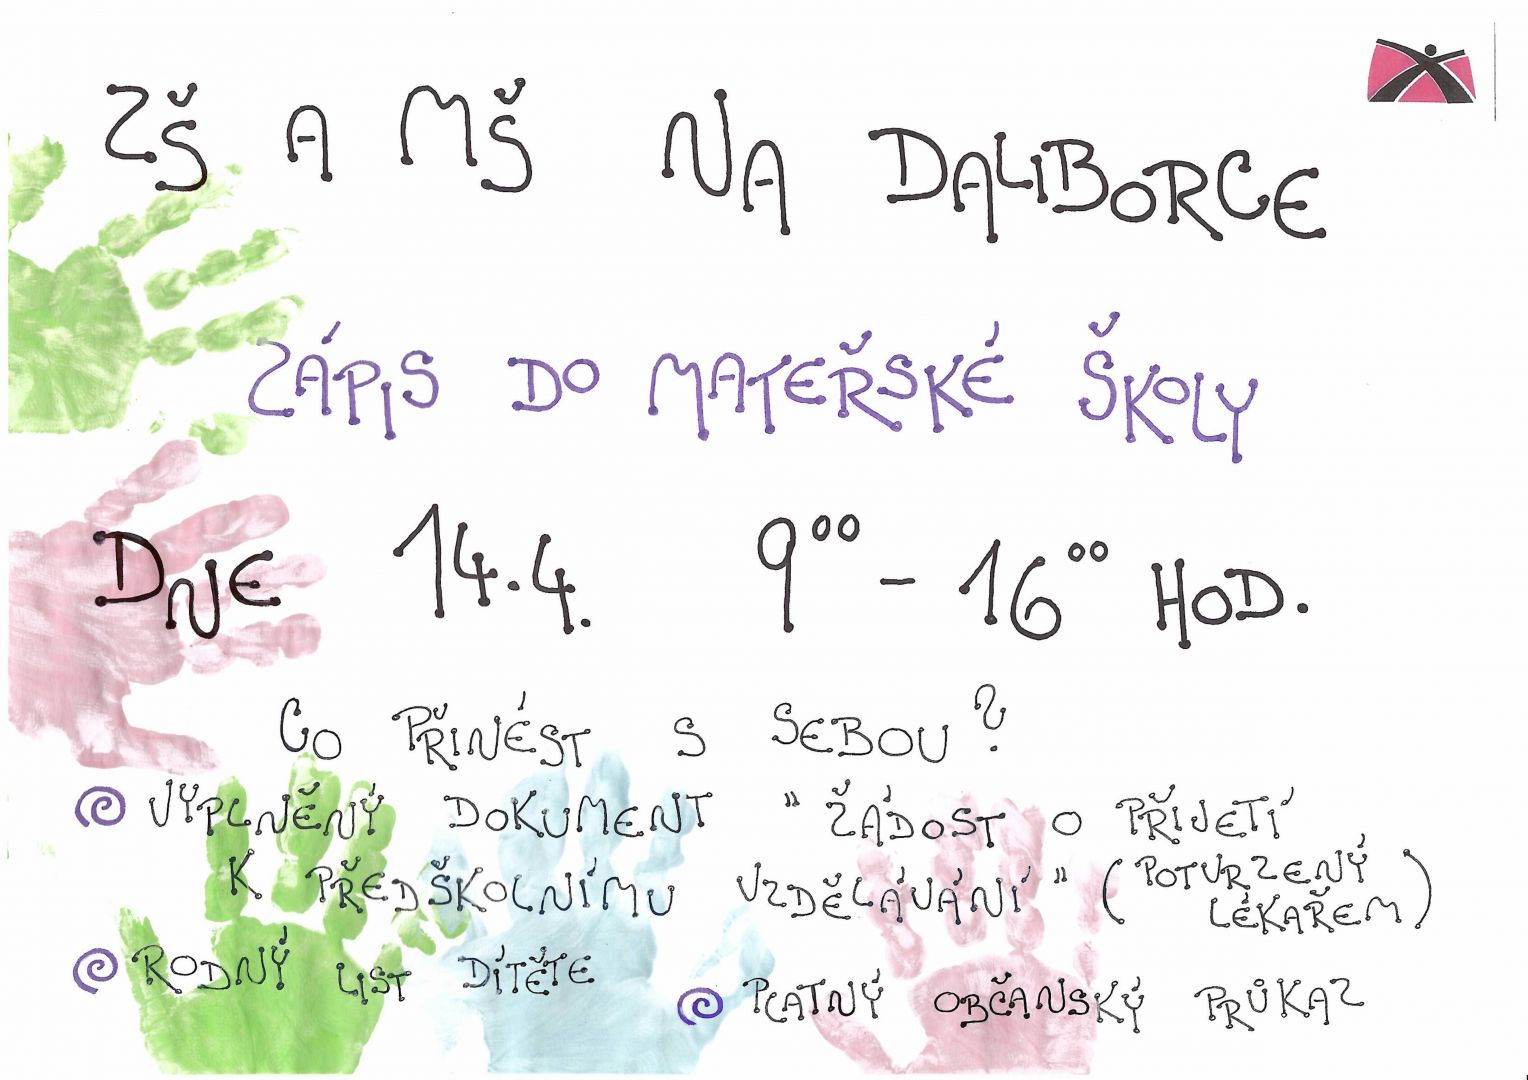 ZŠ A MŠ NA DALIBORCE
ZÁPIS DO MATEŘSKÉ ŠKOLY
DNE 14.4. 9⁰⁰ - 16⁰⁰ HOD.
CO PŘINÉST S SEBOU?
VYPLNĚNÝ DOKUMENT "ŽÁDOST O PŘIJETÍ
K PŘEDŠKOLNÍMU VZDĚLÁVÁNÍ" (POTVRZENÝ
LÉKAŘEM)
RODNÝ LIST DÍTĚTE
PLATNÝ OBČANSKÝ PRŮKAZ